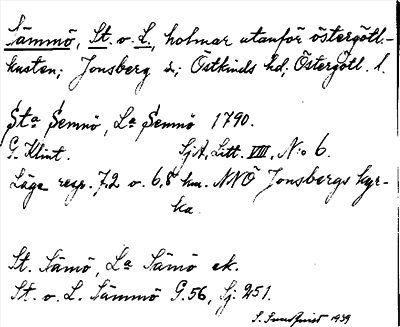 Sämmö, St. o. L., holmar utanför östergötl.-
kusten; Jonsberg s; Östkinds hd; Östergötl. l.
Sta Semnö, La Semnö 1790.
G. Klint. SjA, Litt. VIII, N:o 6.
Läge resp. 7,2 o. 6,8 km. NNÖ Jonsbergs kyr-
ka.
St. Sämö, La Sämö ek.
St. o. L. Sämmö G. 56, Sj. 251.
S. Sundqvist 1939